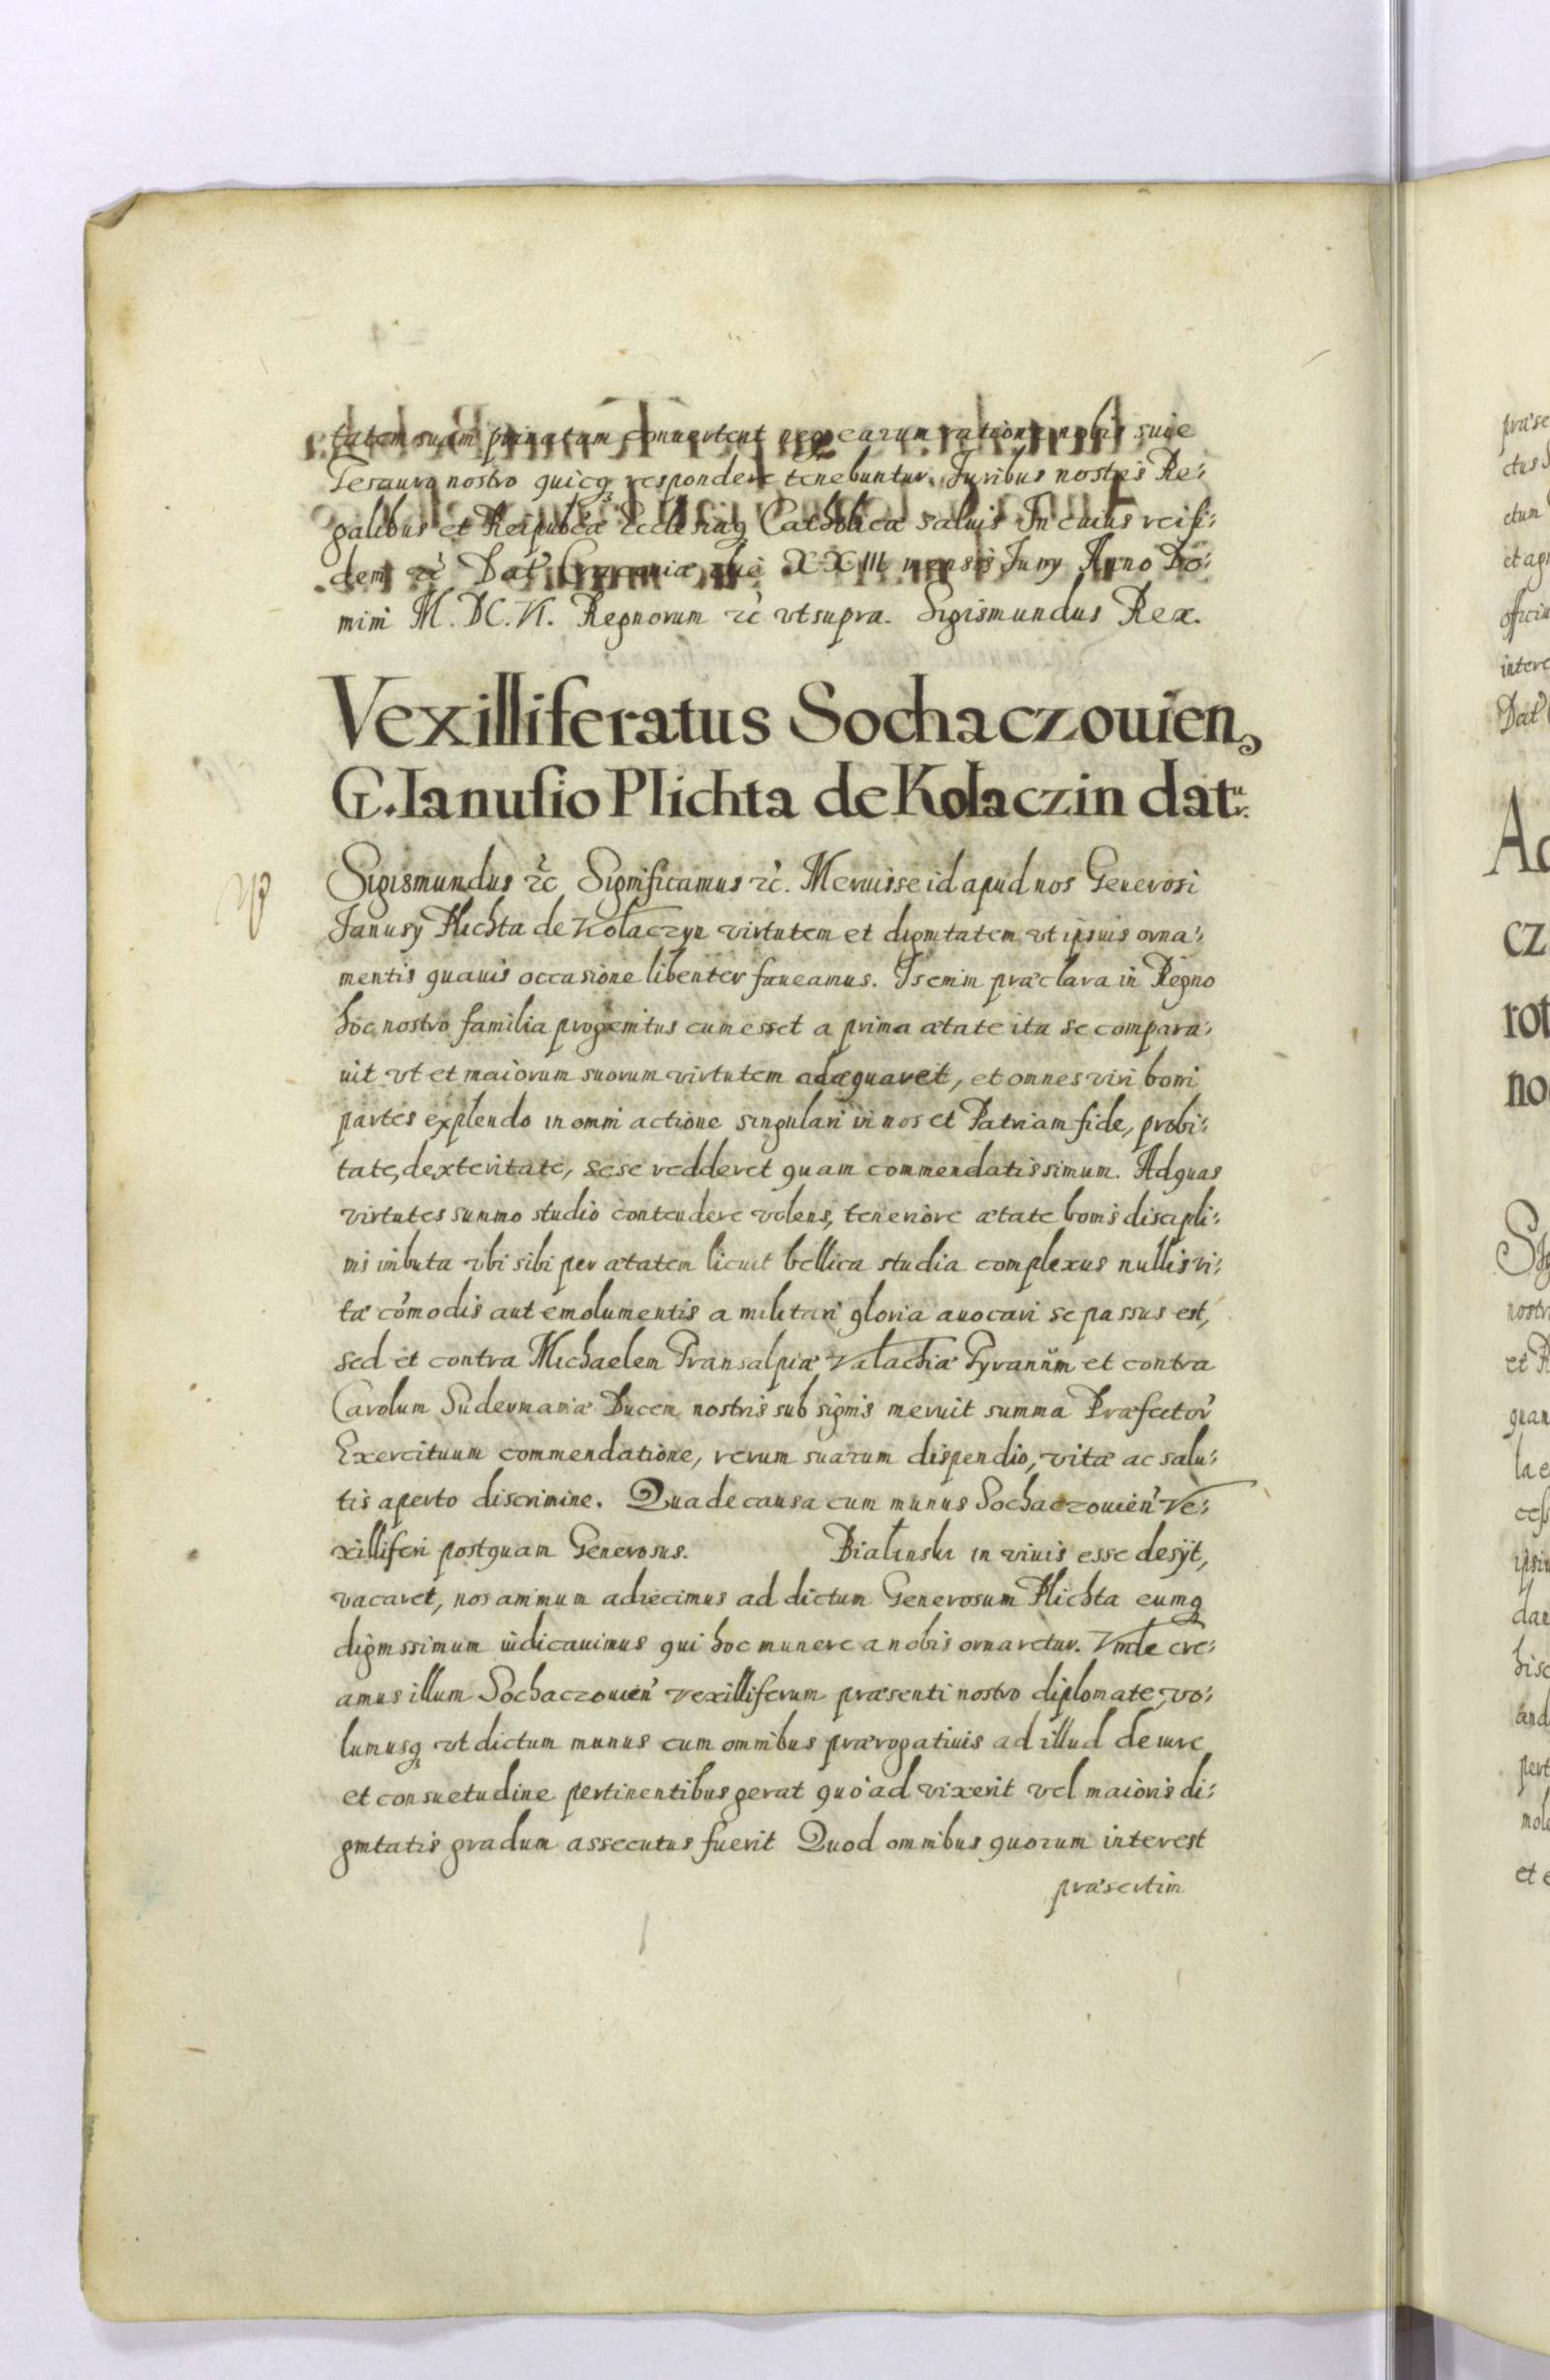 tatem suam priuatam conuertent neq₃ earum ratione nobis siue
Tesauro nostro quicq₃ respondere tenebuntur. Juribus nostris Re:
galibus et Reipublicæ Ecclesiæq₃ Catholicæ saluis In cuius rei fi:
dem ꝛc̃ Dat Cracouiæ die XXIII mensis Juny Anno Do:
mini M. DC. VI. Regnorum ꝛc̃ vt supra. Sigismundus Rex.
Vexilliferatus Sochaczouien,
G. Ianusio Plichta de Kolaczin datᵘʳ.
Sigismundus ꝛc̃ Significamus ꝛc̃. Meruisse id apud nos Generosi
Janusy Plichta de Kołaczyn virtutem et dignitatem vt ipsius orna:
mentis quauis occasione libenter faueamus. Is enim præclara in Regno
hoc nostro familia progenitus cum esset a prima ætate ita se compara:
uit vt et maiorum suorum virtutem adæquaret, et omnes viri boni
partes explendo in omni actione singulari in nos et Patriam fide, probi:
tate, dexteritate, sese redderet quam commendatissimum. Ad quas
virtutes summo studio contendere volens, teneriore ætate bonis discipli:
nis imbuta vbi sibi per ætatem licuit bellica studia complexus nullis vi:
tæ cõmodis aut emolumentis a militari gloria auocari se passus est,
sed et contra Michaelem Transalpiæ Valachiæ Tyranũm et contra
Carolum Sudermaniæ Ducem nostris sub signis meruit summa Præfector̃
Exercituum commendatione, rerum suarum dispendio, vitæ ac salu:
tis aperto discrimine. Qua de causa cum munus Sochaczouien̄ Ve:
xilliferi postquam Generosus. Białinski in viuis esse desÿt,
vacaret, nos animum adiecimus ad dictum Generosum Plichta eumq₃
dignissimum iudicauimus qui hoc munere a nobis ornaretur. Vnde cre:
amus illum Sochaczouien̄ Vexilliferum præsenti nostro diplomate, vo:
lumusq₃ vt dictum munus cum omnibus prærogatiuis ad illud de iure
et consuetudine pertinentibus gerat quo ad vixerit vel maioris di:
gnitatis gradum assecutus fuerit Quod omnibus quorum interest
præsertim